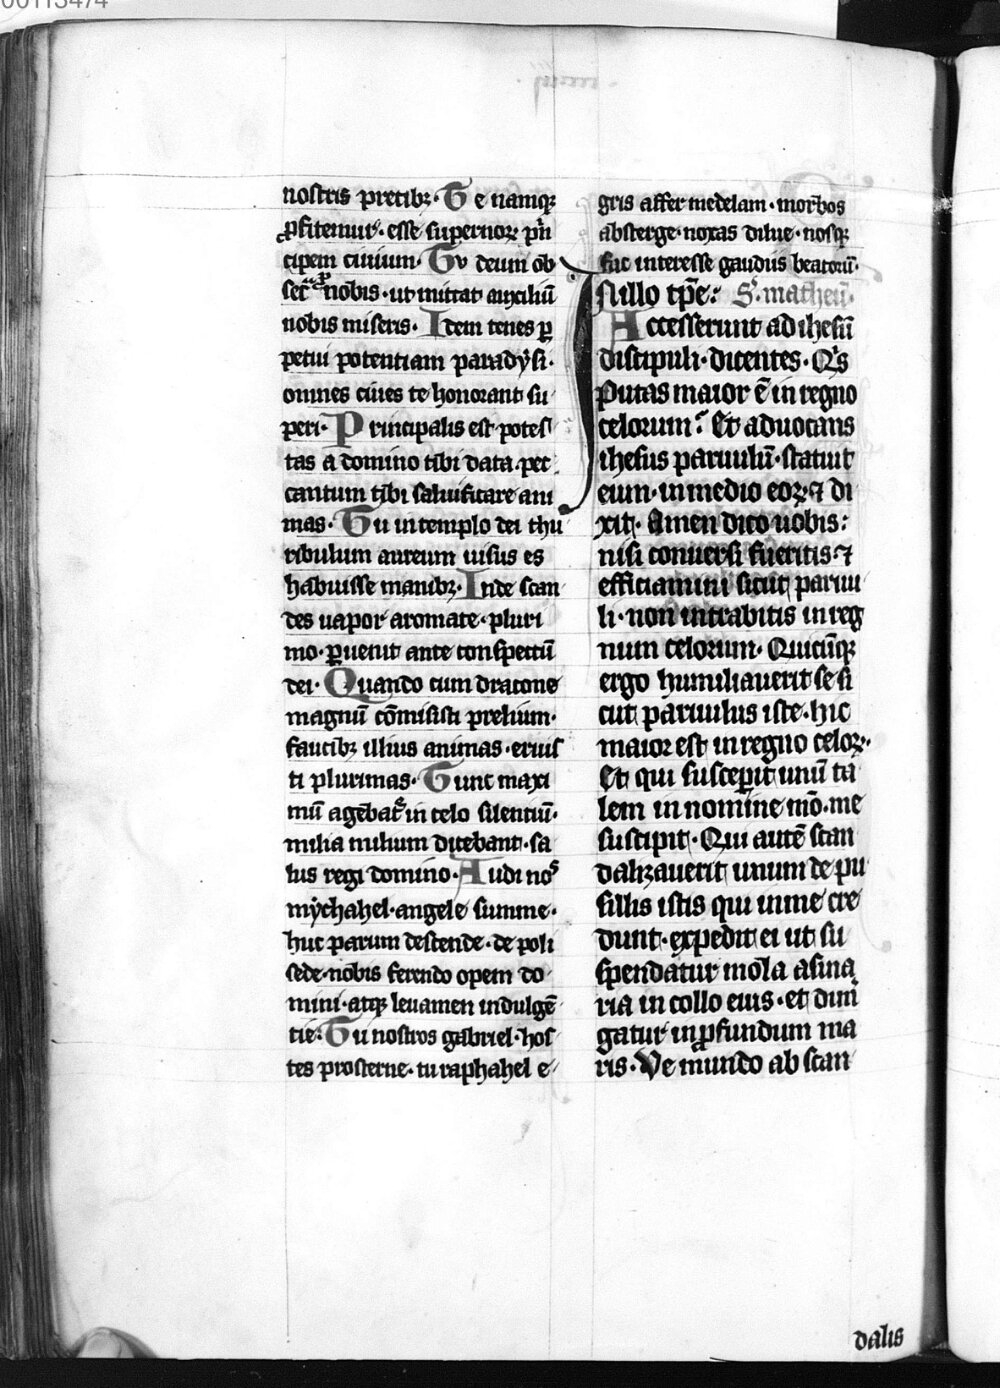 00113474
nostris precibꝫ· Te namqꝫ
ꝓfitemur· esse supernoꝝ pͥn
cipem ciuium· Tv deum ob
secͣ ꝓ nobis· ut mittat auxiliū
nobis miseris· Idem tenes ꝑ
petui potentiam paradẏsi·
omnes ciues te honorant su
peri· Principalis est potes
tas a domino tibi data· pec
cantum tibi saluificare ani
mas· Tu in templo dei thu
ribulum aureum uisus es
habuisse manibꝫ· Inde scan
des uapor aromate· pluri
mo· ꝑuenit ante conspectū
dei· Quando cum dracone
magnū cōmisisti prelium·
faucibꝫ illius animas· eruis
ti plurimas· Tunc maxi
mū agebatͤ in celo silentiū·
milia milium dicebant· sa
lus regi domino· Audi noˢ
mẏchahel· angele summe·
huc parum descende· de poli
sede· nobis ferendo opem do
mini· atqꝫ leuamen indulgē
tie: Tu nostros gabriel· hos
tes prosterne· tu raphahel e
gris affer medelam· morbos
absterge· noxas dilue· nosqꝫ
fac interesse gaudiis beatoruꝫ·
In illo tp̄e: S· matheū·
Accesserunt ad ihesū
discipuli· dicentes· Qͥs
putas maior ē in regno
celorum? Et aduocans
ihesus paruulū· statuit
eum· in medio eoꝝ ⁊ di
xit· Amen dico uobis:
nisi conuersi fueritis ⁊
efficiamini sicut paruu
li· non intrabitis in reg
num celorum· Quicūqꝫ
ergo humiliauerit se si
cut paruulus iste· hic
maior est in regno celoꝝ·
Et qui susceperit unū ta
lem in nomine mō· me
suscipit· Qui autē scan
dalizauerit unum de pu
sillis istis qui in me cre
dunt· expedit ei ut su
spendatur mola asina
ria in collo eius· et dim̄
gatur in ꝓfundum ma
ris· Ve mundo ab scan
dalis